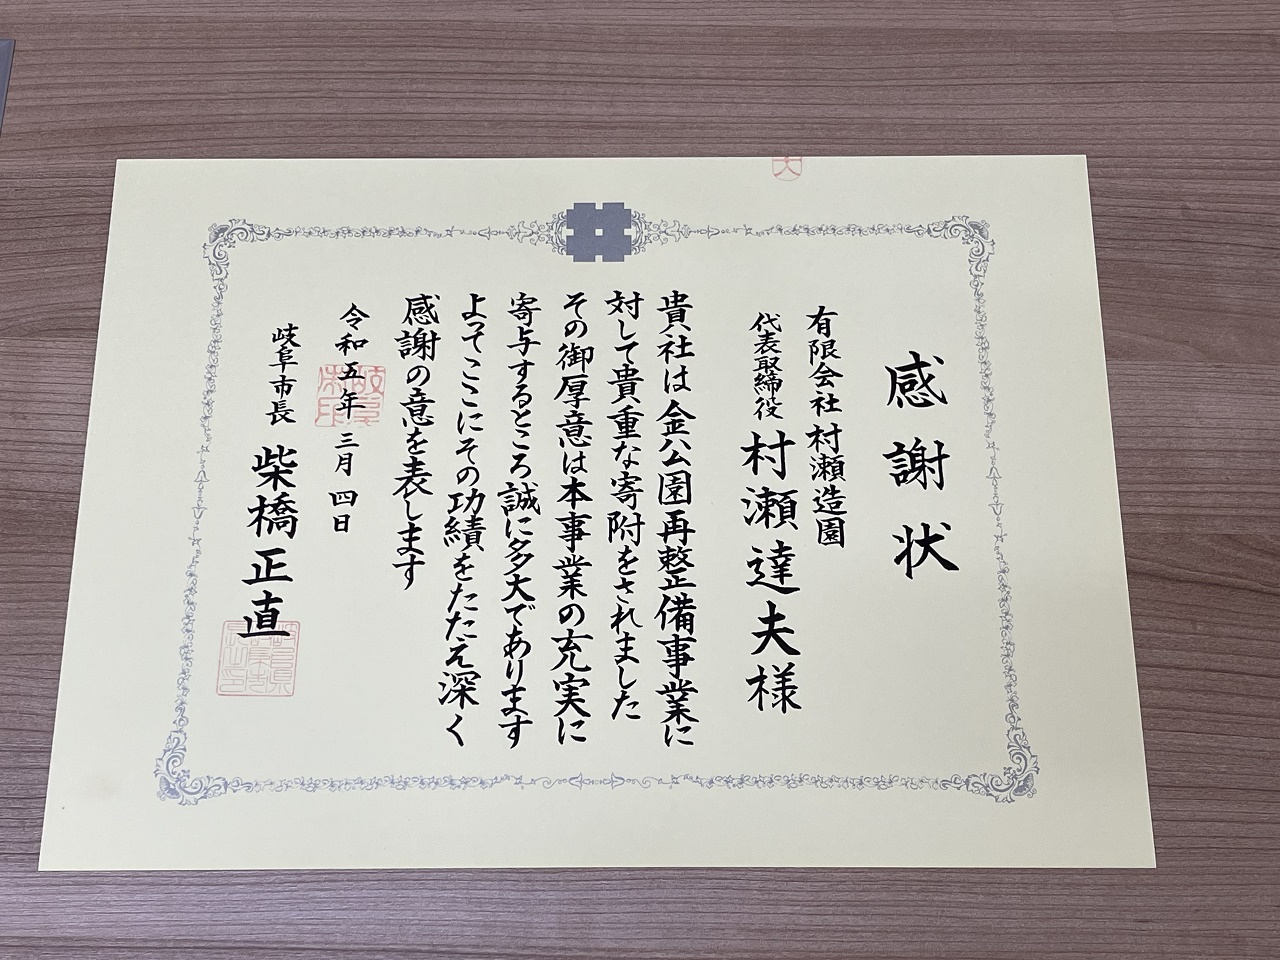 感謝状
有限会社 村瀬造園
代表取締役 村瀬達夫様
貴社は金公園再整備事業に
対して貴重な寄附をされました
その御厚意は本事業の充実に
寄与するところ誠に多大であります
よってここにその功績をたたえ深く
感謝の意を表します
令和五年三月四日
岐阜市長 柴橋正直